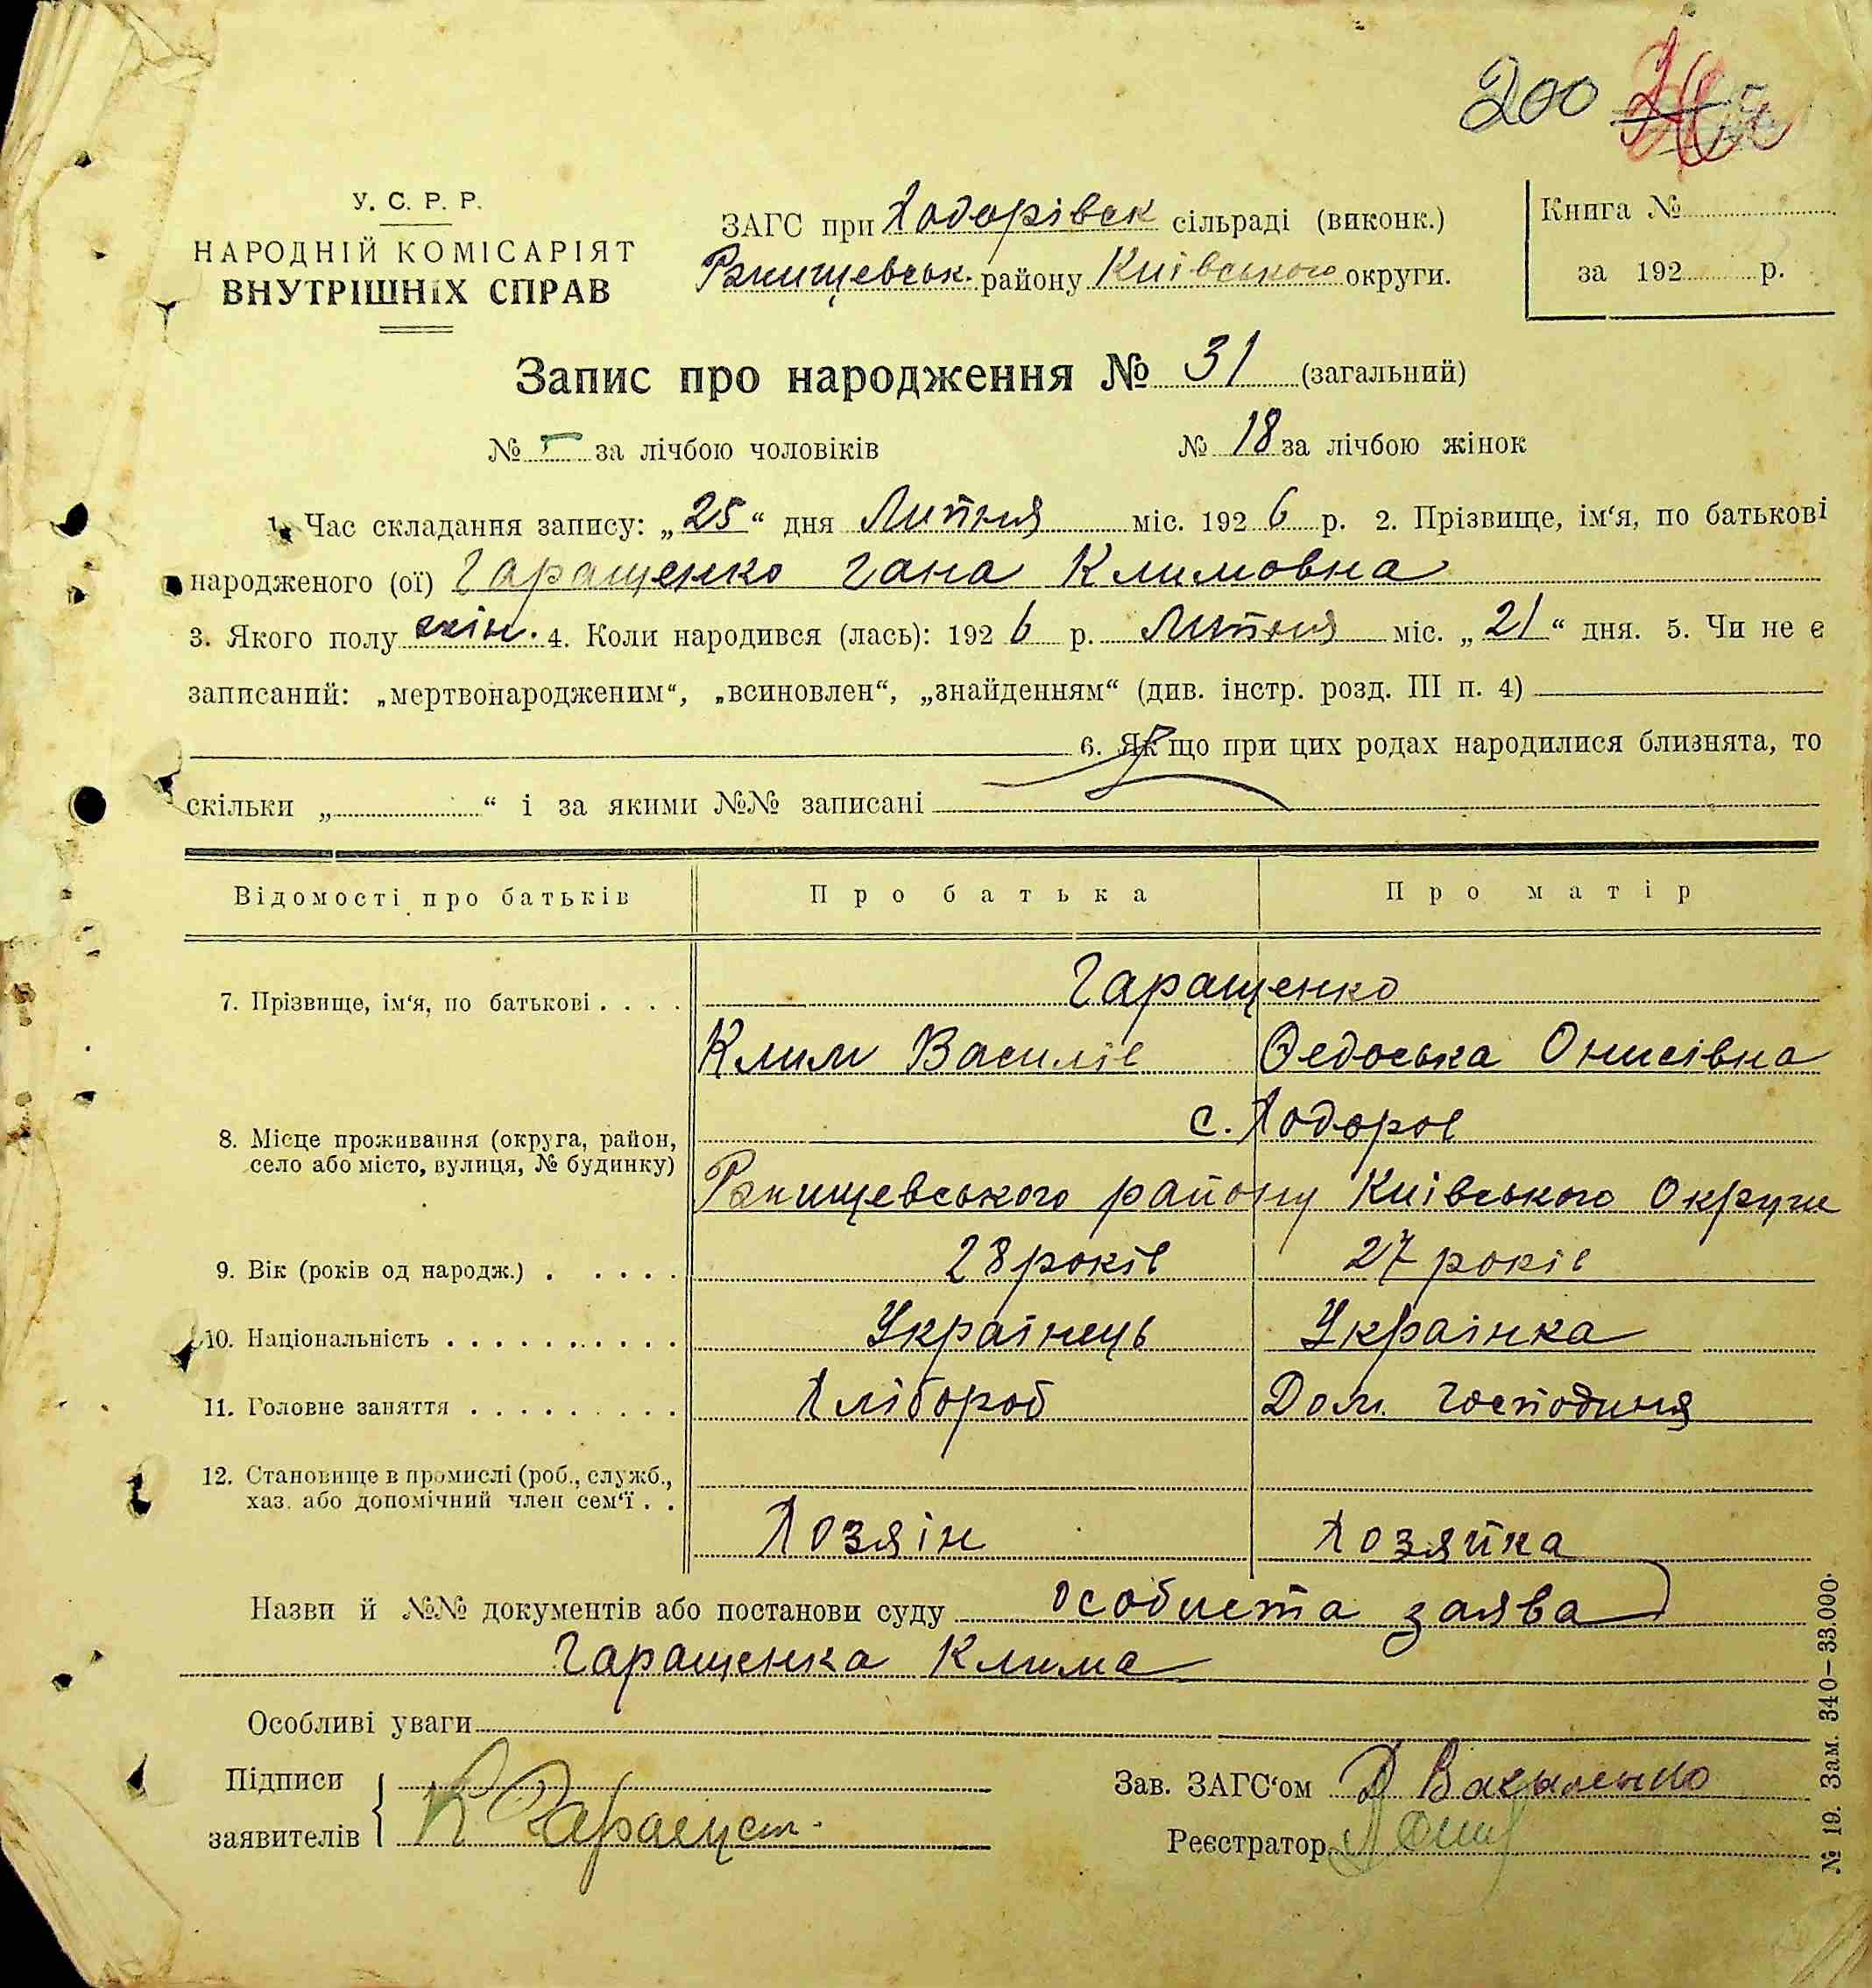 200
У. С. Р. Р.
НАРОДНІЙ КОМІСАРІЯТ
ВНУТРІШНІХ СПРАВ
ЗАГС при Ходорівск сільраді (виконк.)
Ржищевськ. району Київського округи.
Книга №
за 192 р.
Запис про народження № 31 (загальний)
№ за лічбою чоловіків № 18 за лічбою жінок
1. Час складання запису: „25“ дня Липня міс. 1926 р. 2. Прізвище, ім‘я, по батькові
народженого (ої) Гаращенко Гана Климовна
3. Якого полу жін. 4. Коли народився (лась): 1926 р. Липня міс. „21“ дня. 5. Чи не є
записаний: „мертвонародженим“, „всиновлен“, „знайденням“ (див. інстр. розд. III п. 4)
6. Якщо при цих родах народилися близнята, то
скільки „ “ і за якими №№ записані
Відомості про батьків Про батька Про матір
7. Прізвище, ім‘я, по батькові . . . . Гаращенко
Клим Василів Федоська Онисівна
8. Місце проживання (округа, район,
село або місто, вулиця, № будинку)
с. Ходоров
Ржищевського району Київського Округи
9. Вік (років од народж.) . . . . . 28 років 27 років
10. Національність . . . . . . . . . . . Українець Українка
11. Головне заняття . . . . . . . . . Хлібороб Дом. Господиня
12. Становище в промислі (роб., служб.,
хаз. або допомічний член сем‘ї . .
Хозяін Хозяйка
Назви й №№ документів або постанови суду особиста заява
Гаращенка Клима
Особливі уваги
Підписи
заявителів
К Гаращен.
Зав. ЗАГС‘ом Василенко
Реєстратор
№ 19. Зам. 340–33.000.